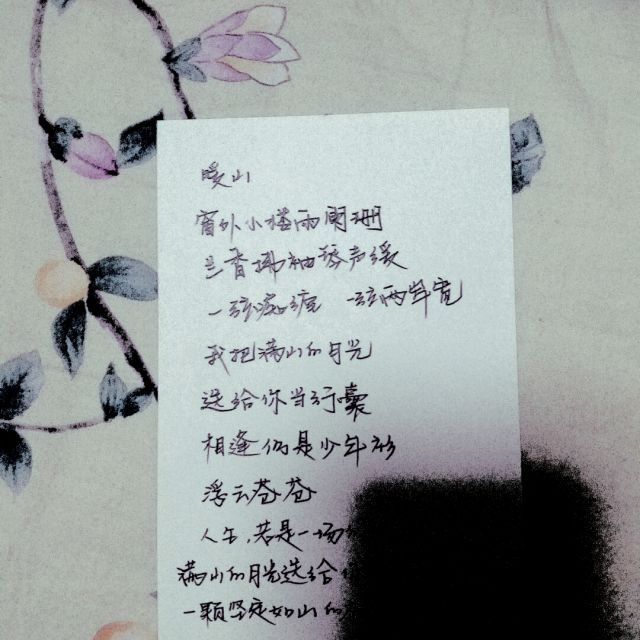 暖山
窗外小楼雨阑珊
兰香拂袖琴声缓
一弦痴缠 一弦两畔宽
我把满山的月光
送给你当行囊
相逢仍是少年衫
浮云苍苍
人生,若是一场
满山的月光送给
一颗坚定如山的